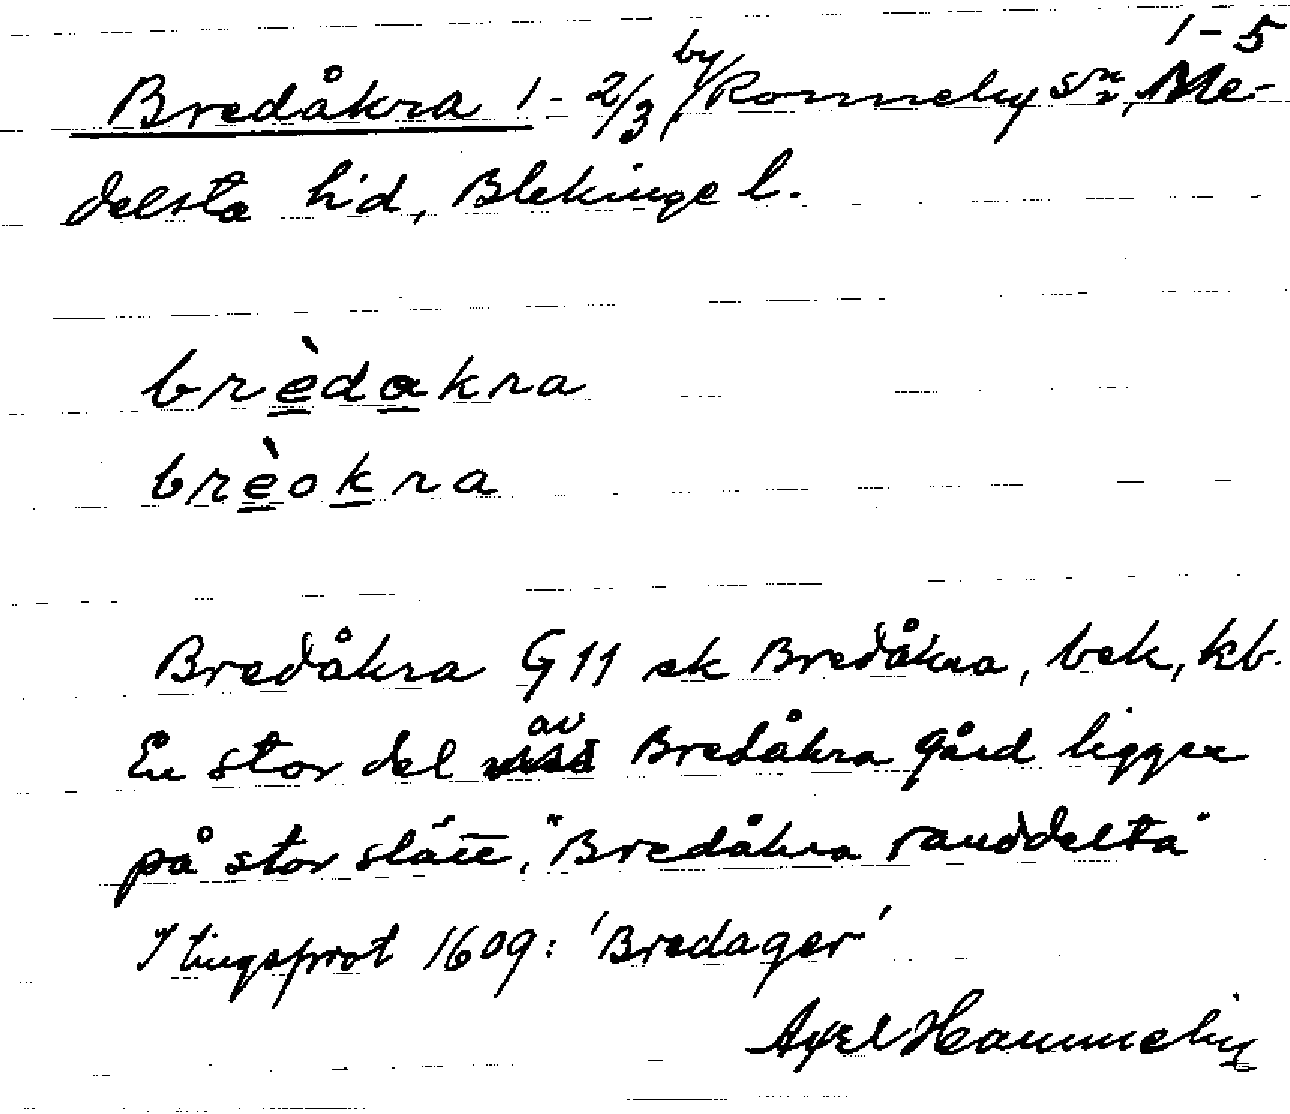 1-5
Bredåkra 1-2/3 by Ronneby sn, Me-
delsta hd, Blekinge l.
brèdakra
brèokra
Bredåkra G11 ek Bredåkra, bek, kb.
En stor del av Bredåkra gård ligger
på stor slätt, "Bredåkra randdelta"
I tingsprot 1609: 'Bredager'
Axel Hammeby